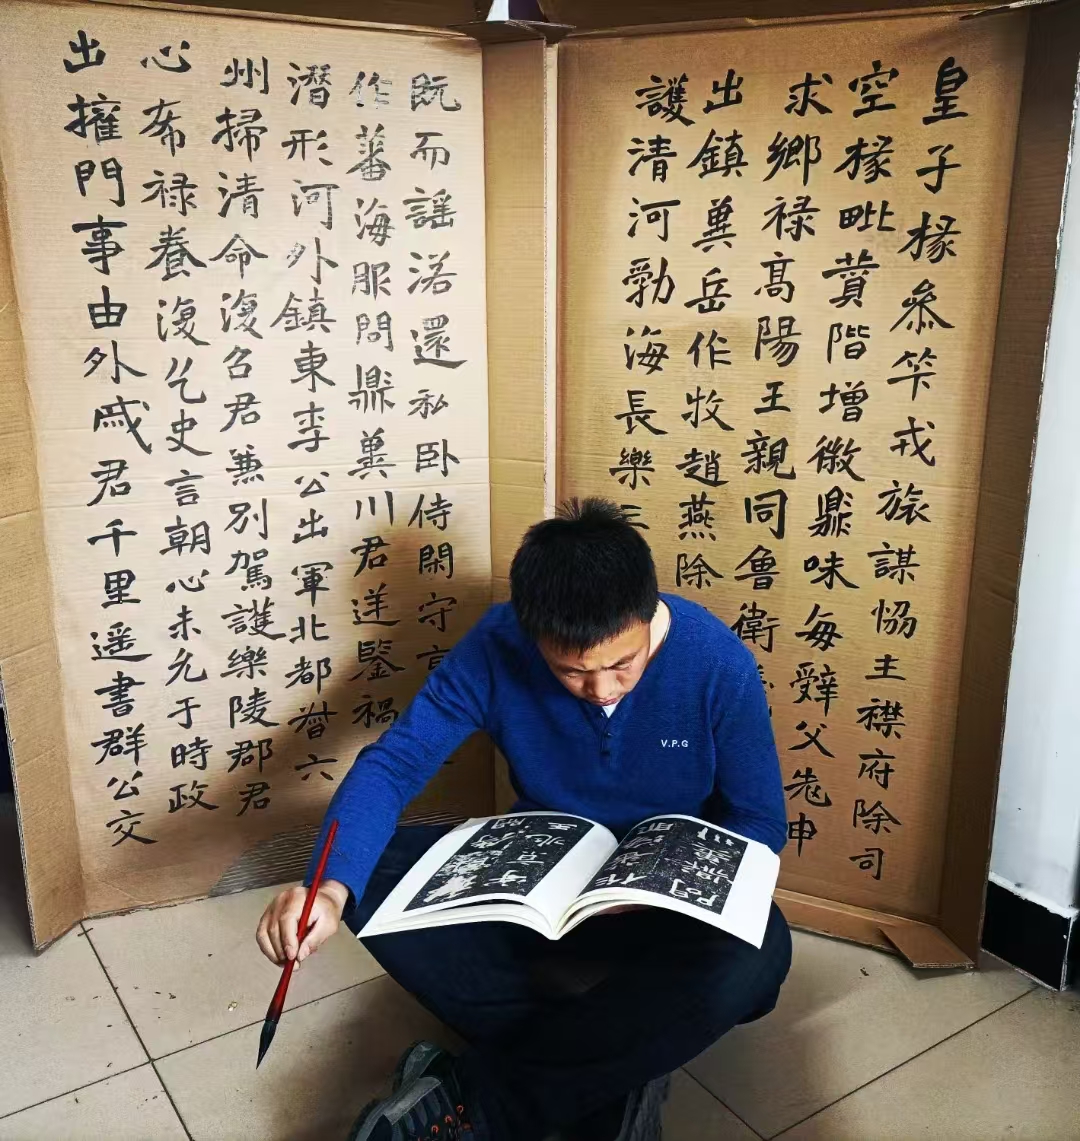 皇子掾叅笇戎旅謀恊主襟府除司
空掾毗賛階增徽鼎味每辤父老申
求鄉祿高陽王親同魯衛
出鎮冀岳作牧趙燕除
護清河勃海長樂三
既而謡落還私卧侍閑守
作蕃海服問鼎冀川君逆鑒禍
潛形河外鎮東李公出軍北都督六
州掃清命復召君兼別駕護樂陵郡君
心希祿養復乞史言朝心未允于時政
出擁門事由外戚君千里遥書群公交
V.P.G